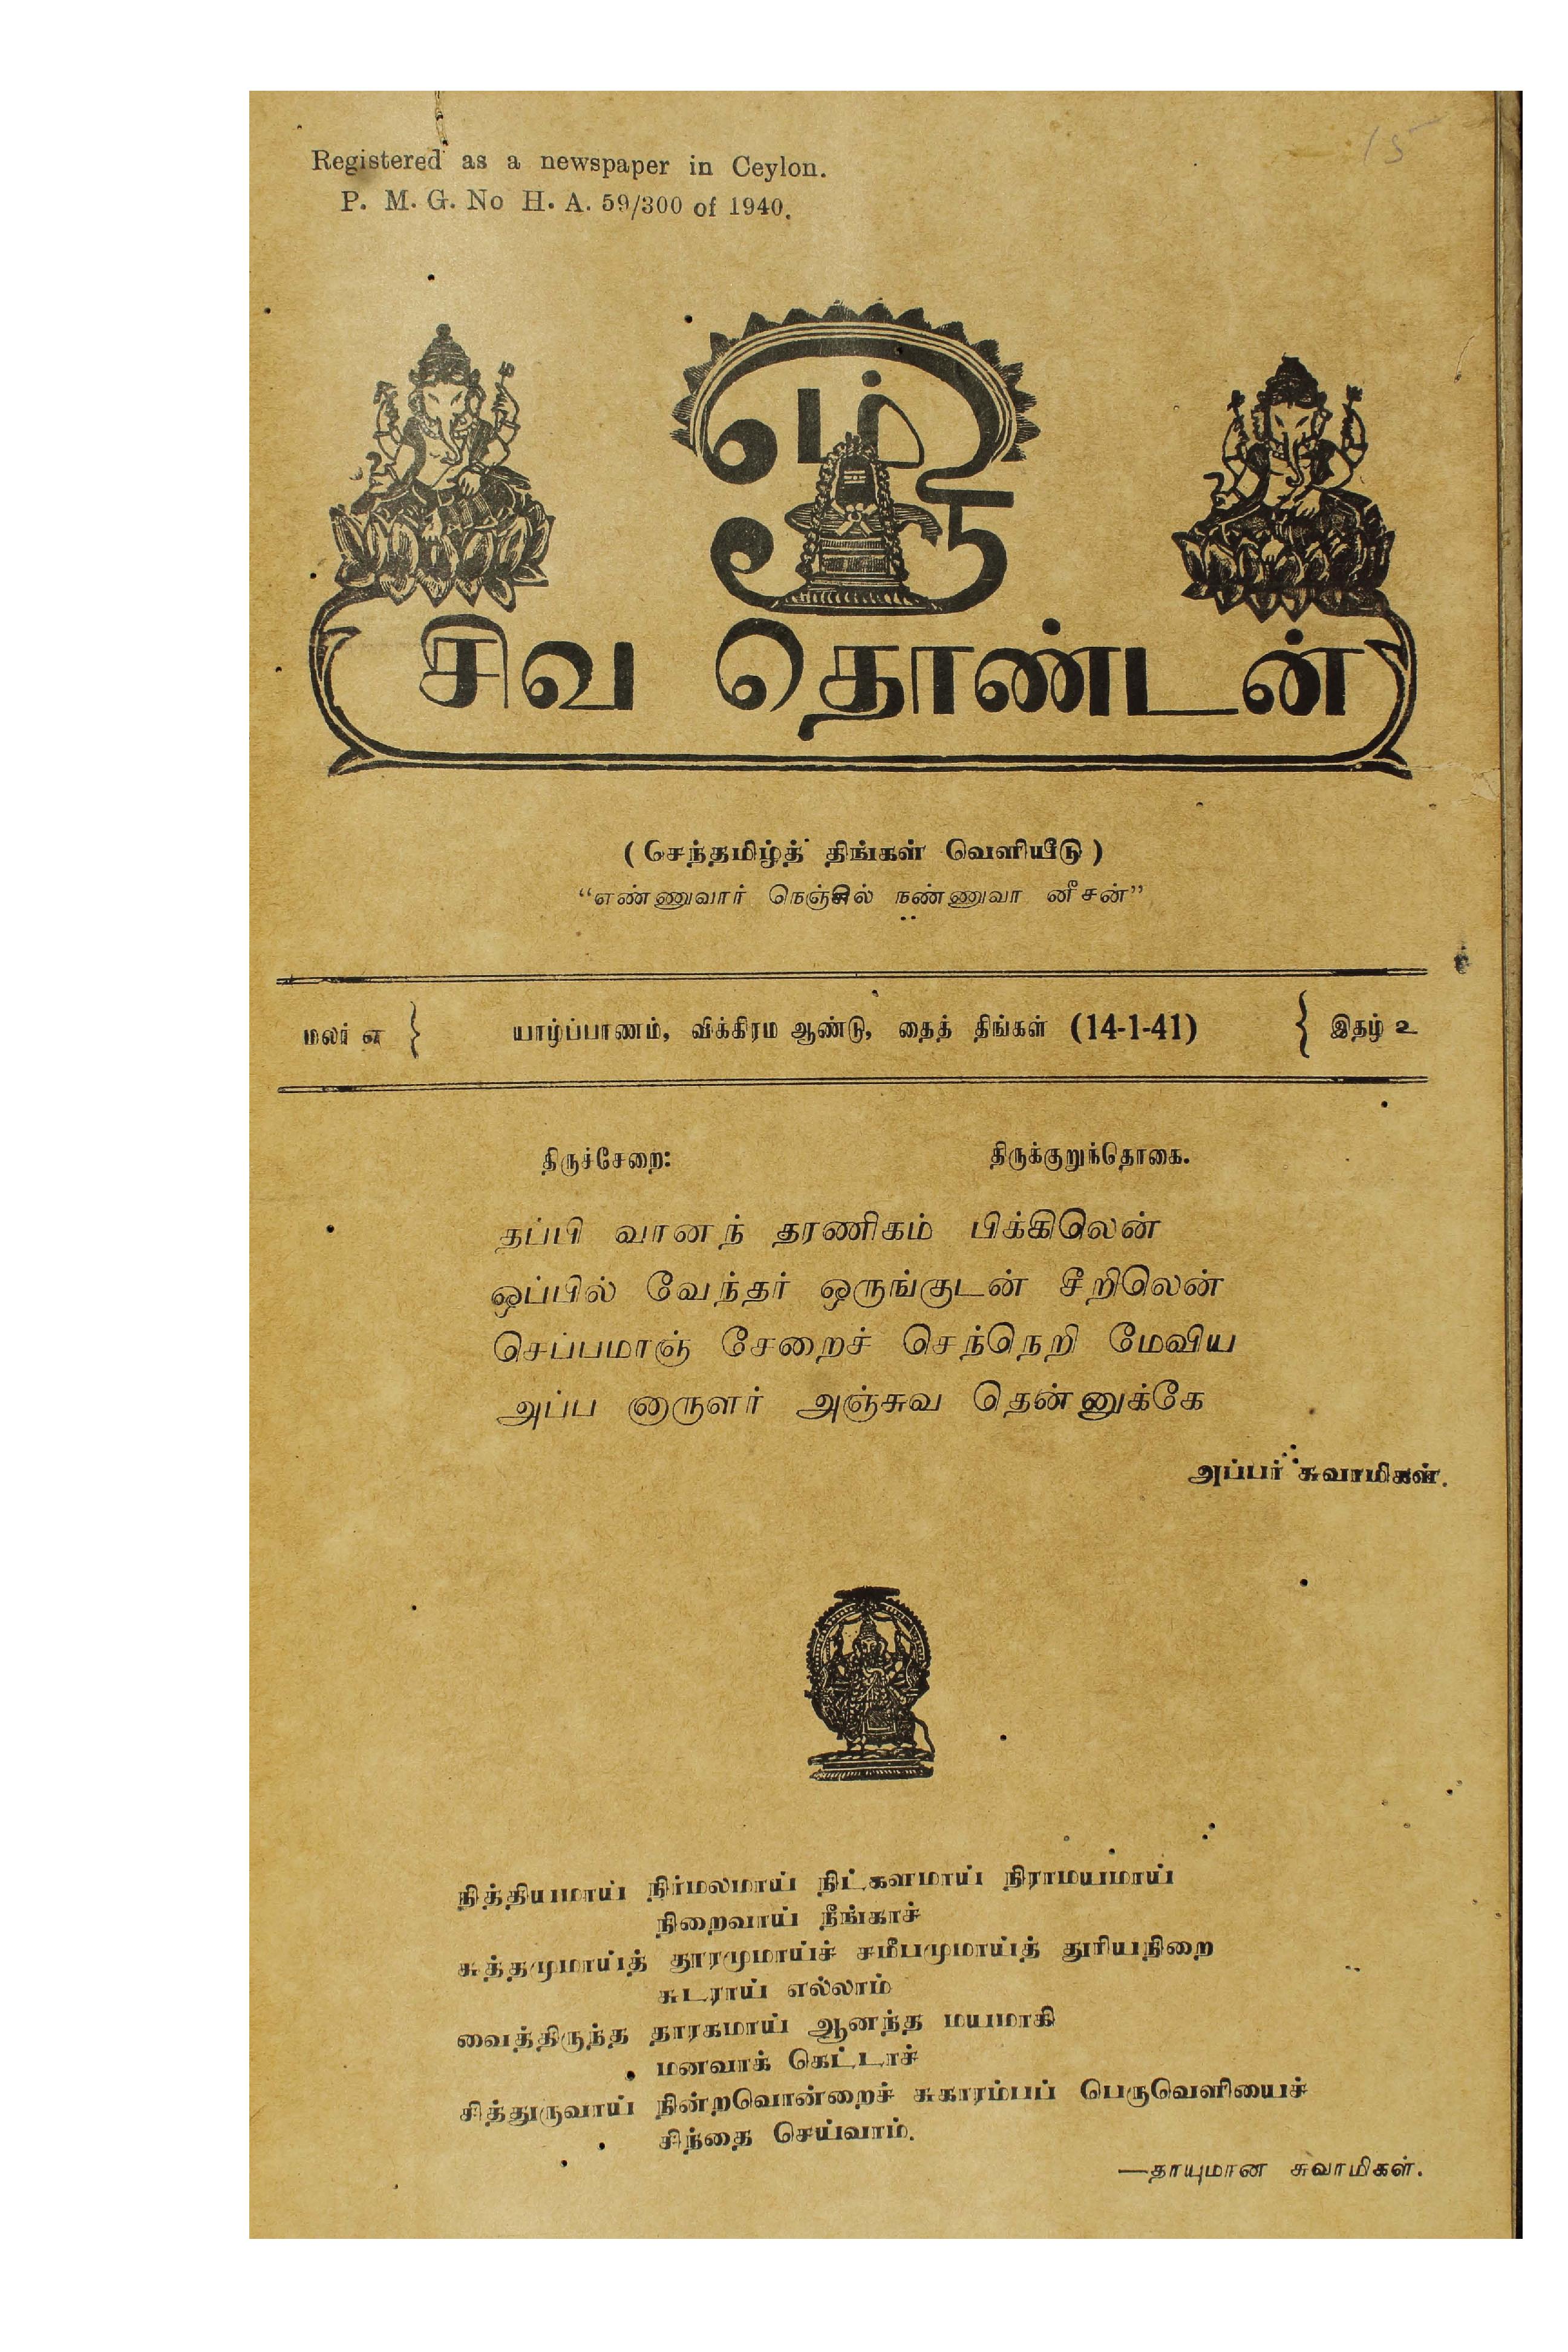 Registered as a newspaper in Ceylon.
P. M. G. No H. A. 59/300 of 1940.
15
ஓம்
சிவ தொண்டன்
( செந்தமிழ்த் திங்கள் வெளியீடு )
“எண்ணுவார் நெஞ்சில் நண்ணுவா னீசன்”
மலர் ௭ } யாழ்ப்பாணம், விக்கிரம ஆண்டு, தைத் திங்கள் (14-1-41) { இதழ் ௨
திருச்சேறை: திருக்குறுந்தொகை.
தப்பி வானந் தரணிகம் பிக்கிலென்
ஒப்பில் வேந்தர் ஒருங்குடன் சீறிலென்
செப்பமாஞ் சேறைச் செந்நெறி மேவிய
அப்ப னாருளர் அஞ்சுவ தென்னுக்கே
அப்பர் சுவாமிகள்.
நித்தியமாய் நிர்மலமாய் நிட்களமாய் நிராமயமாய்
நிறைவாய் நீங்காச்
சுத்தமுமாய்த் தூரமுமாய்ச் சமீபமுமாய்த் துரியநிறை
சுடராய் எல்லாம்
வைத்திருந்த தாரகமாய் ஆனந்த மயமாகி
மனவாக் கெட்டாச்
சித்துருவாய் நின்றவொன்றைச் சுகாரம்பப் பெருவெளியைச்
சிந்தை செய்வாம்.
—தாயுமான சுவாமிகள்.